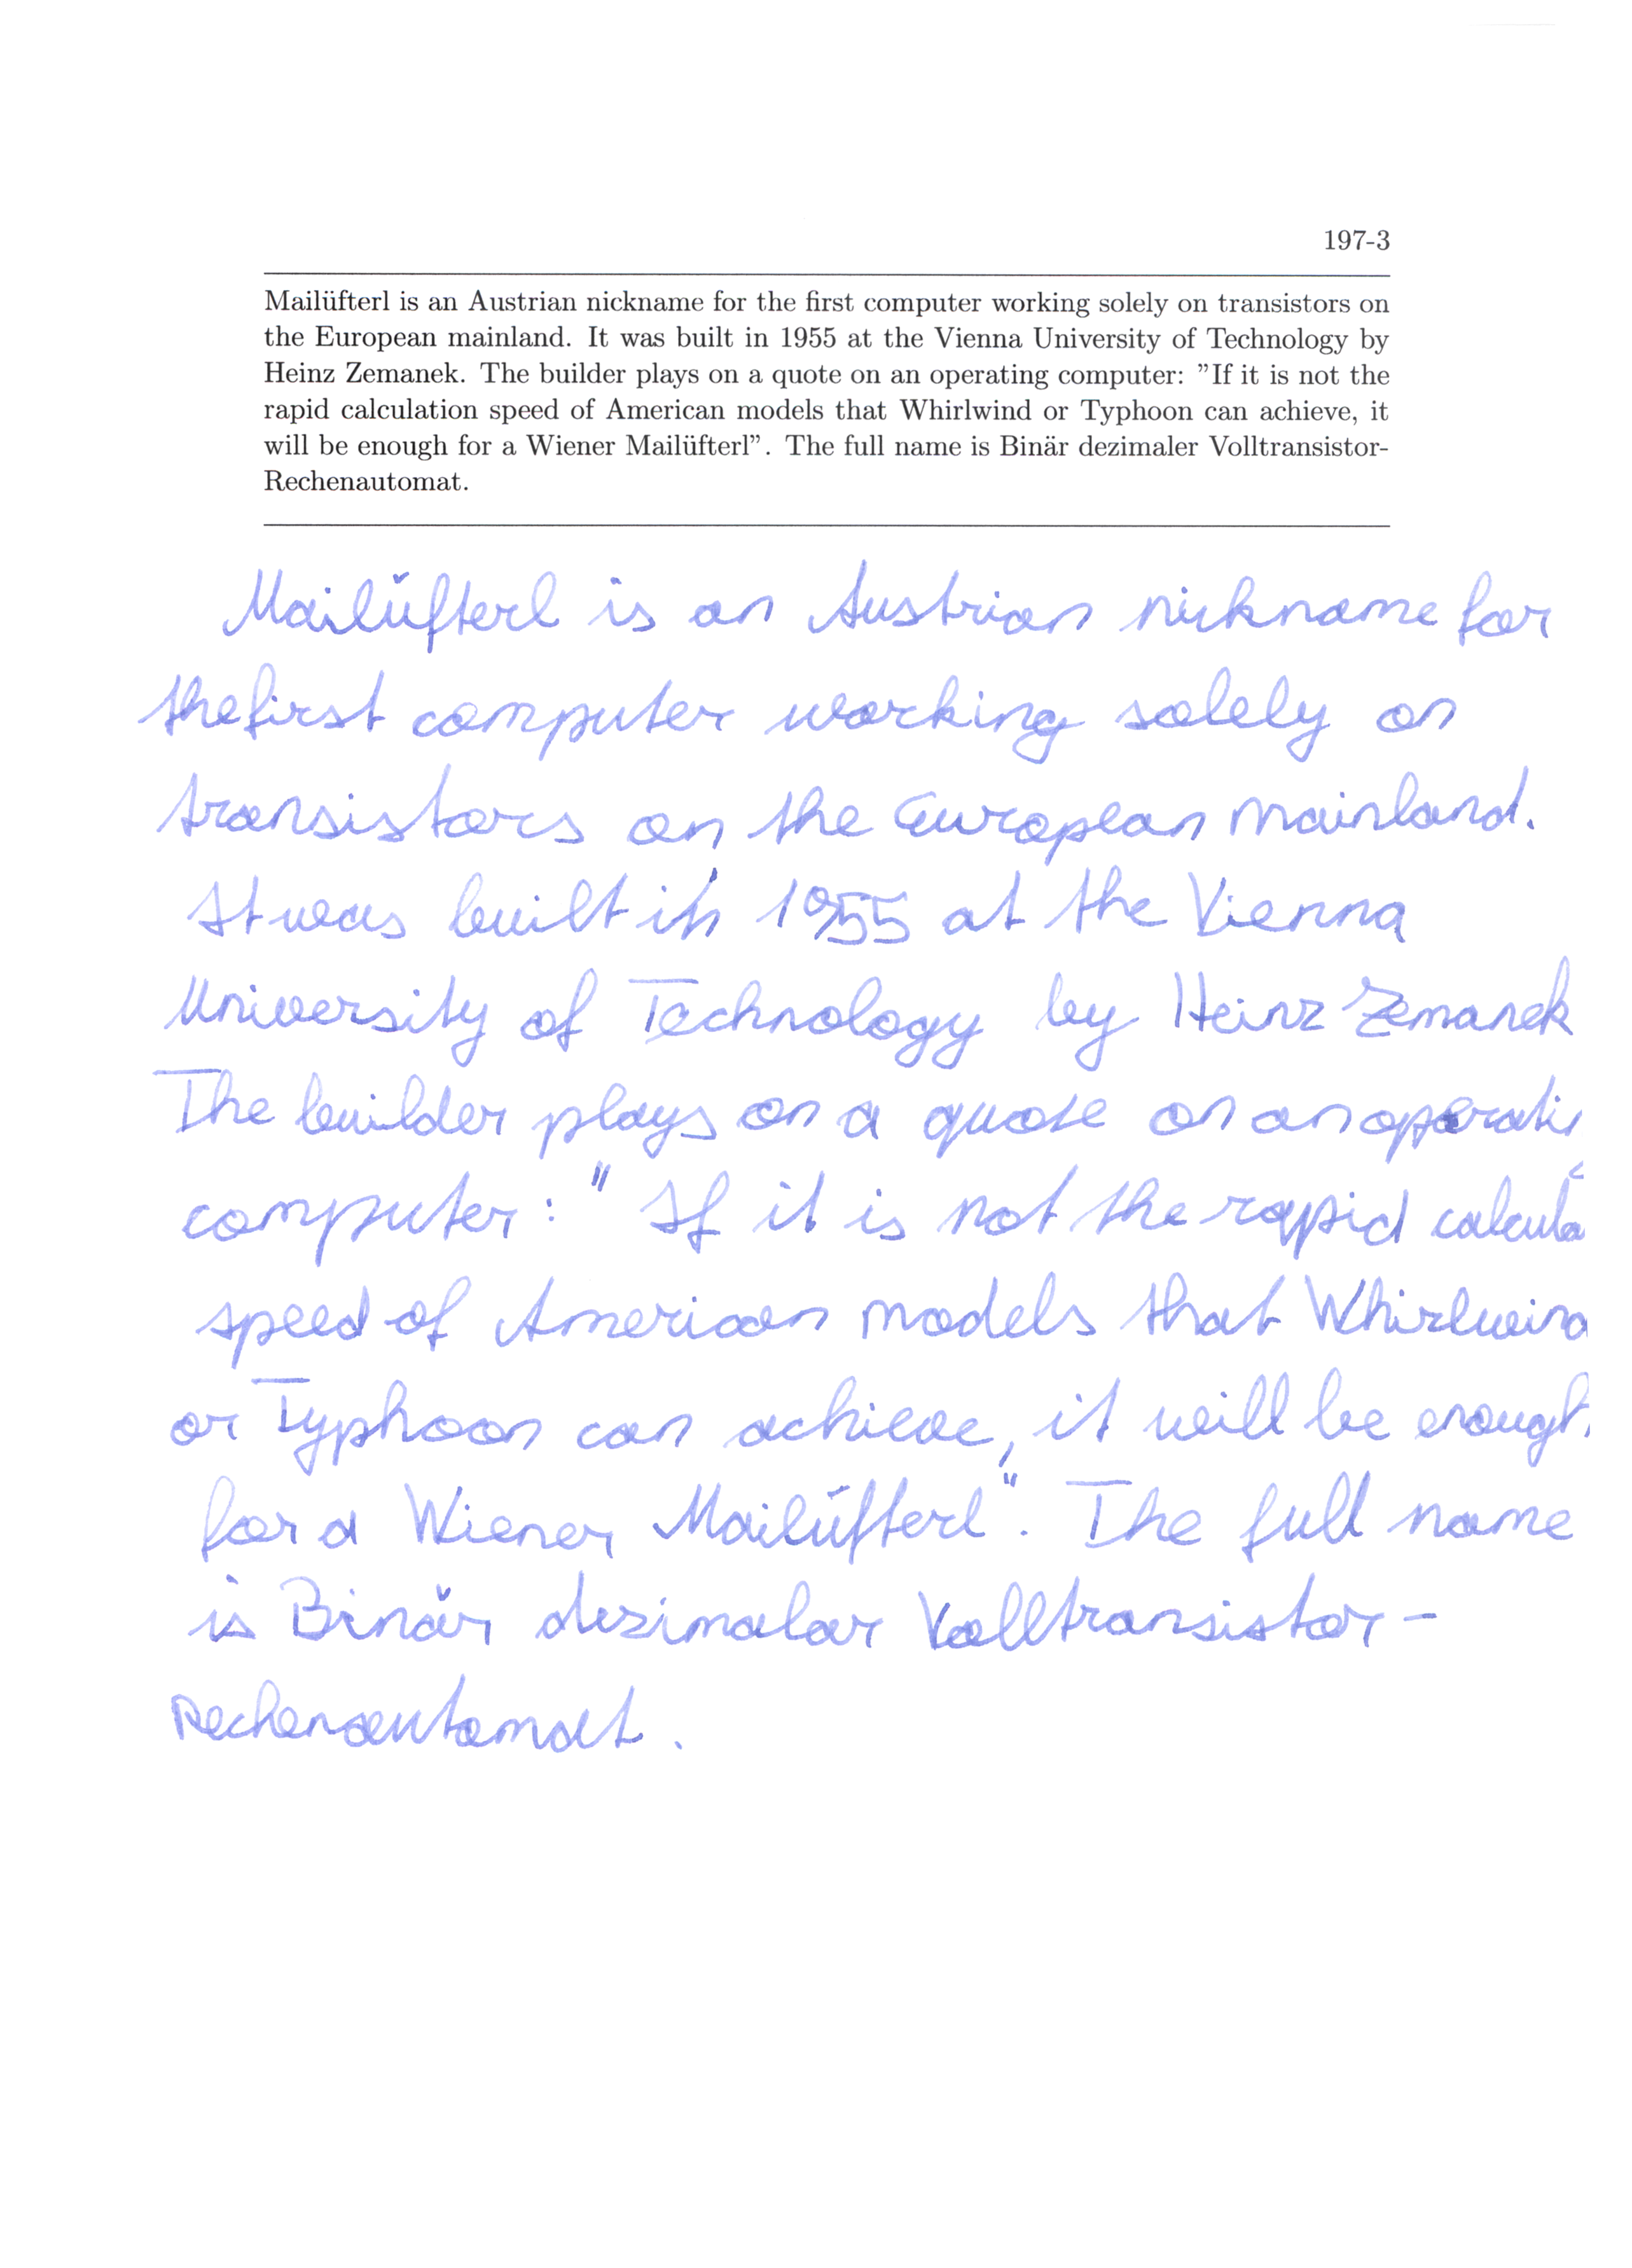 197-3
Mailüfterl is an Austrian nickname for the first computer working solely on transistors on
the European mainland. It was built in 1955 at the Vienna University of Technology by
Heinz Zemanek. The builder plays on a quote on an operating computer: ”If it is not the
rapid calculation speed of American models that Whirlwind or Typhoon can achieve, it
will be enough for a Wiener Mailüfterl”. The full name is Binär dezimaler Volltransistor-
Rechenautomat.
Mailüfterl is an Austrian nickname for
the first computer working solely on
transistors on the European mainland.
It was built in 1955 at the Vienna
University of Technology by Heinz Zemanek
The builder plays on a quote on an operati
computer: "If it is not the rapid calcula
speed of American models that Whirlwind
or Typhoon can achieve, it will be enough
for a Wiener Mailüfterl". The full name
is Binär dezimalar Volltransistor-
Rechenautomat.